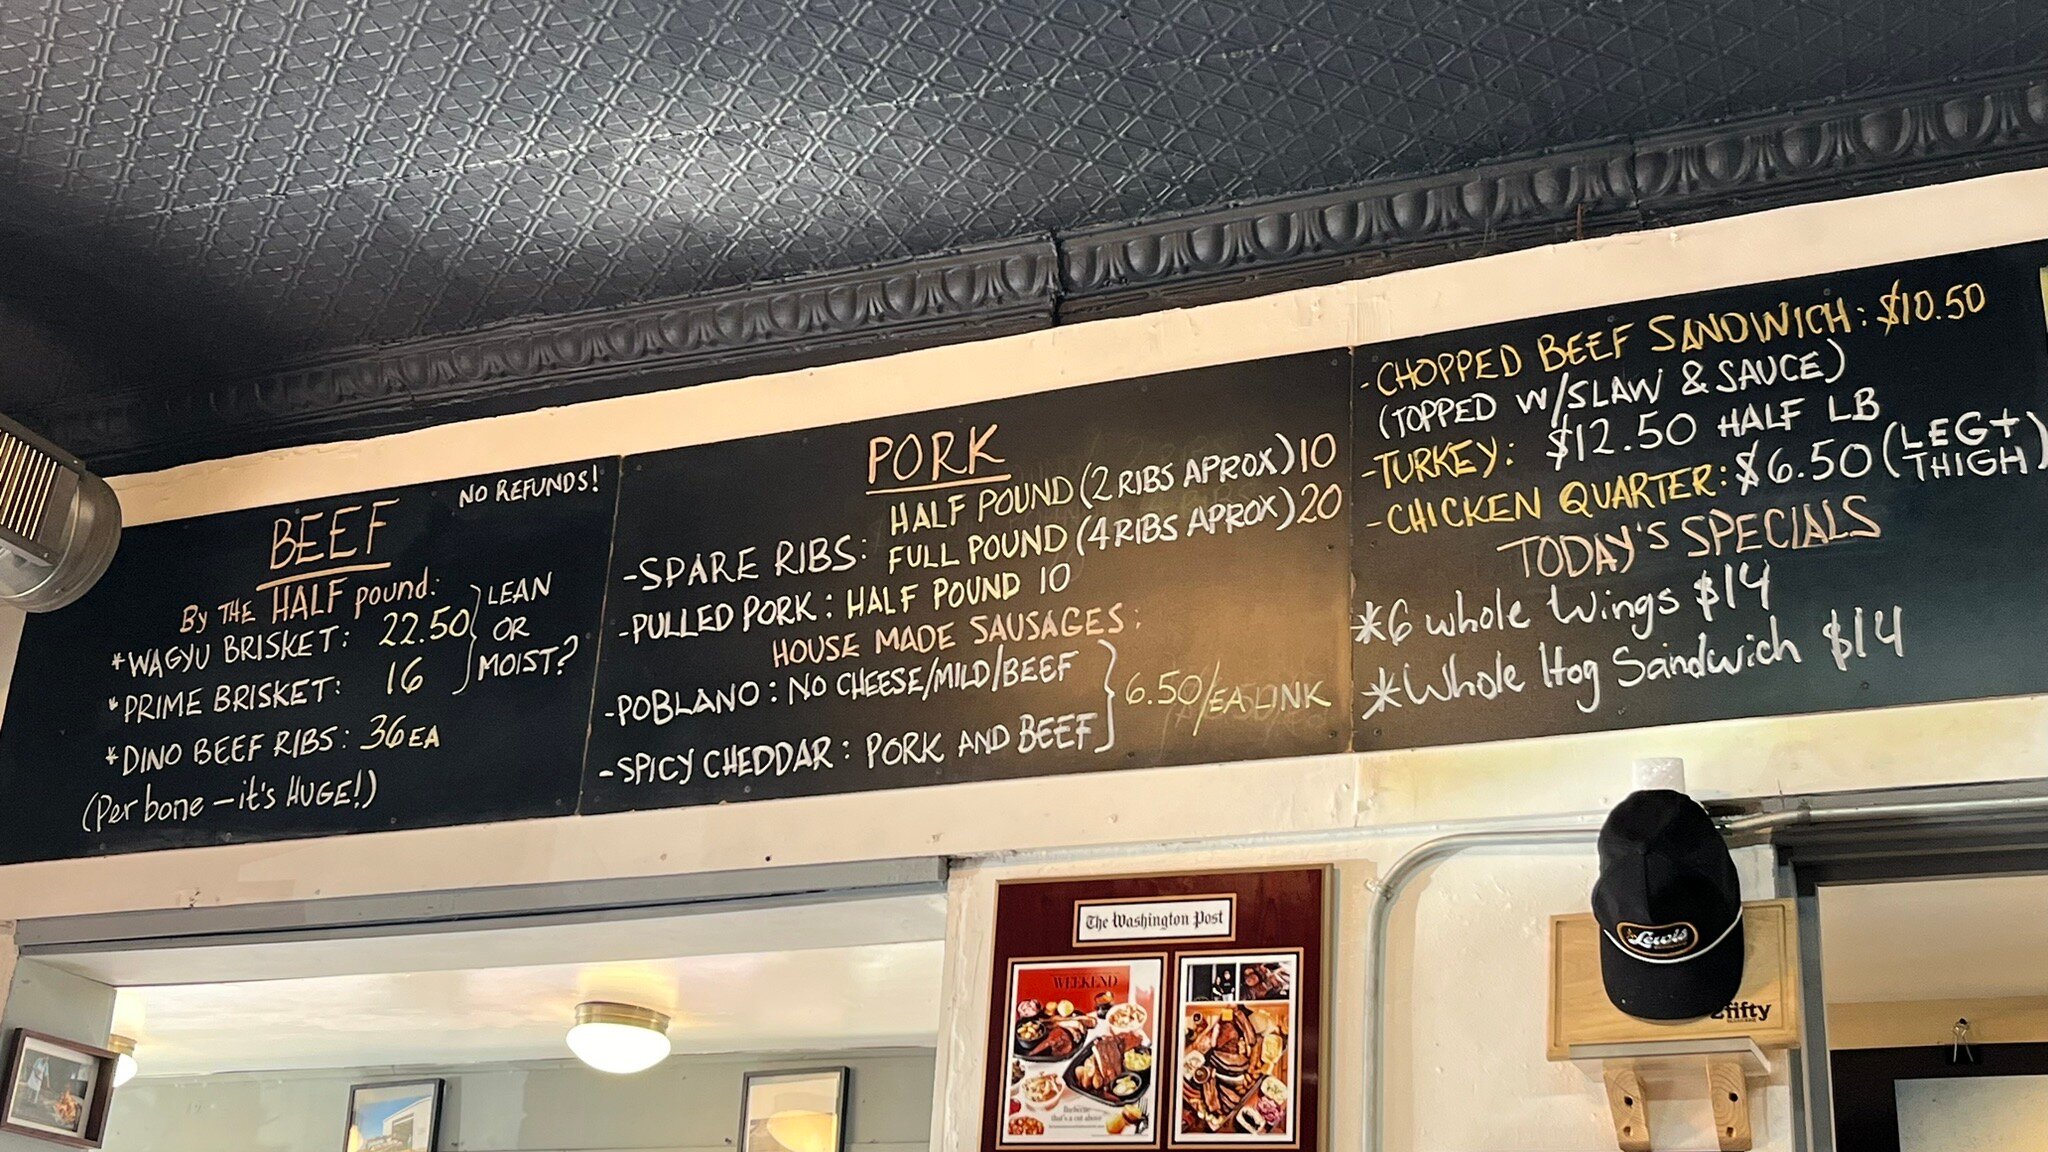 NO REFUNDS!
BEEF
BY THE HALF pound:
*WAGYU BRISKET: 22.50
*PRIME BRISKET: 16
LEAN
OR
MOIST?
*DINO BEEF RIBS: 36 EA
(Per bone - it's HUGE!)
PORK
-SPARE RIBS: HALF POUND (2 RIBS APROX) 10
FULL POUND (4 RIBS APROX) 20
-PULLED PORK: HALF POUND 10
HOUSE MADE SAUSAGES:
-POBLANO: NO CHEESE/MILD/BEEF
-SPICY CHEDDAR: PORK AND BEEF
6.50/EA LINK
-CHOPPED BEEF SANDWICH: $10.50
(TOPPED W/SLAW & SAUCE)
-TURKEY: $12.50 HALF LB
-CHICKEN QUARTER: $6.50 (LEG+
THIGH)
TODAY'S SPECIALS
*6 whole Wings $14
*Whole Hog Sandwich $14
The Washington Post
WEEKEND
Barbecue
that's a cut above
Lewis
2fifty